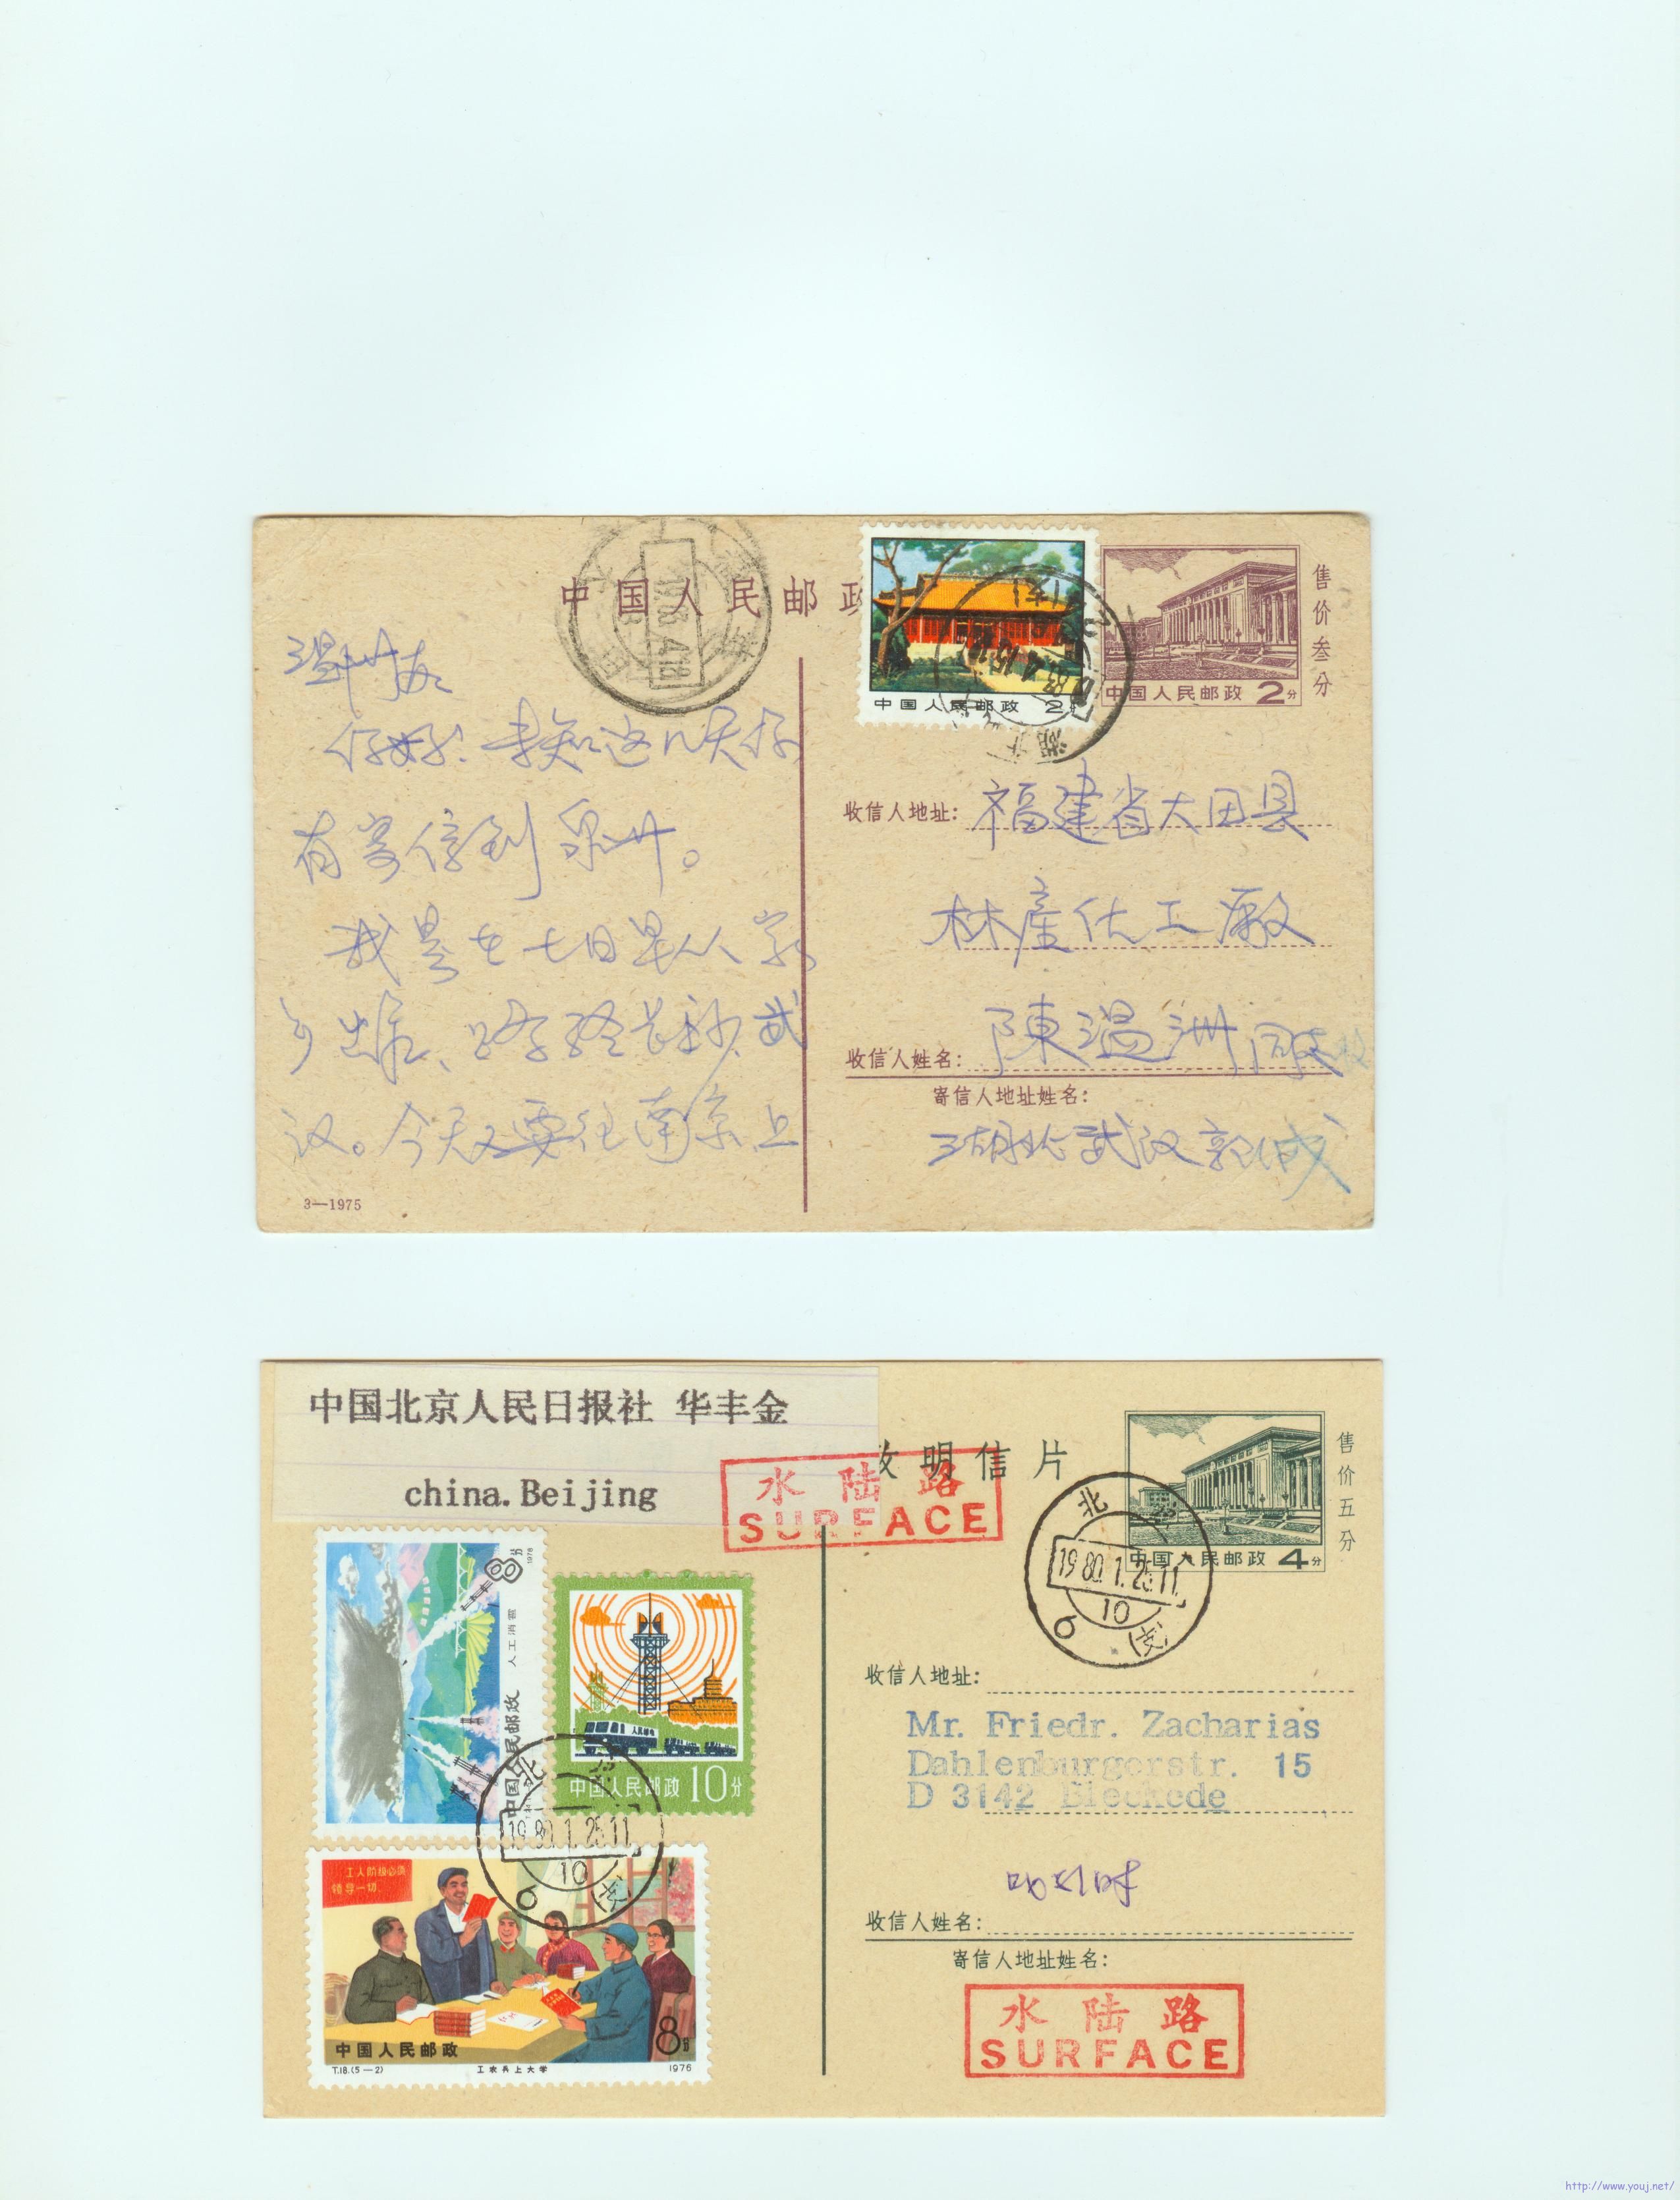 中国人民邮政
售价叁分
中国人民邮政 2分
中国人民邮政 2分
你好!我知这几天你
有寄信到泉州。
我是在七日早从家
乡出发、路经长沙、武
汉。今天又要往南京上
3—1975
收信人地址:福建省大田县
林產化工廠
收信人姓名:陳温洲
寄信人地址姓名:
湖北武汉郭
中国北京人民日报社 华丰金
china.Beijing
明信片
水陆路
SURFACE
售价五分
中国人民邮政 4分
北京
1980.1.25.11
10
6(支)
8分
1978
人工消雹
中国人民邮政
人民邮电
中国人民邮政 10分
北京
1980.1.25.11
10
6(支)
工人阶级必须
领导一切
中国人民邮政 8分
T.18.(5—2) 工农兵上大学 1976
收信人地址:
Mr. Friedr. Zacharias
Dahlenburgerstr. 15
D 3142 Bleckede
收信人姓名:
寄信人地址姓名:
水陆路
SURFACE
http://www.youj.net/